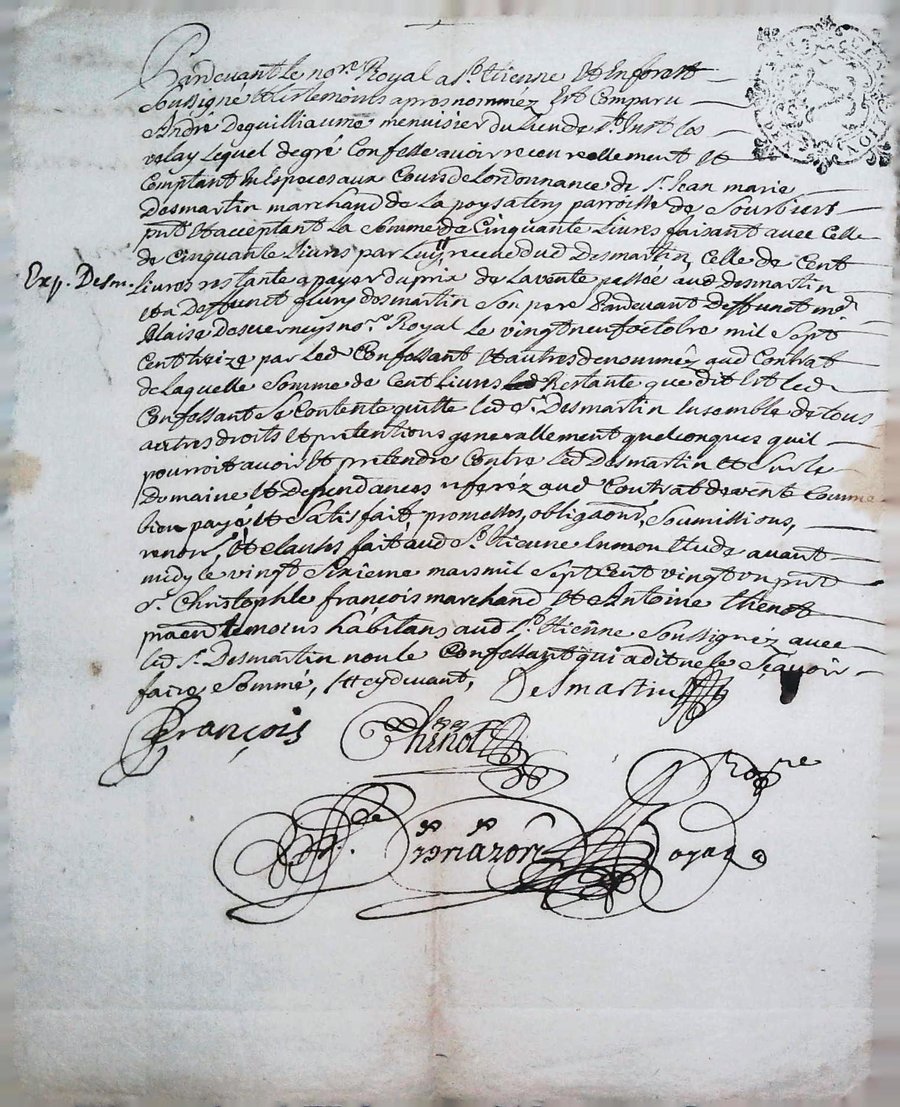 Pardevant le no.re Royal a S.t Etienne Et En forest
Soussigné Et les temoins apres nommez Est Comparu
André Deguilliaume menuisier du lieu de S.t Just les
velay Lequel de gré Confesse avoir receu reellement Et
Comptant En Especes aux Cours de Lordonnance de S.r Jean marie
Desmartin marchand de La parroisse de Sorbiers
p.nt Et acceptant La Somme de Cinquante Livres faisant avec Celle
de Cinquante Livres par Luy receue dud Desmartin, Celle de Cent
Exp. Desm.
Livres restante a payer du prix de La vente passée aud Desmartin
Et a Deffunct fleury desmartin Son pere Pardevant Deffunct m.e
Blaise Desverneys no.re Royal Le vingt neuf octobre mil Sept
Cent treize par Led Confessant Et autres denommez aud Contrat
de Laquelle Somme de Cent Livres Restante que dit Est Led
Confessant Se Contente quitte Led S.r Desmartin Ensemble de tous
autres droits Et pretentions generallement quelconques quil
pourroit avoir Et pretendre Contre Led Desmartin Et Sur Le
Domaine Et Dependances referéz aud Contrat de vente Comme
bien payé Et Satisfait promesses, obliga.ons, Soumissions,
renon.s, Et clauses fait aud S.t Etienne En mon Etude avant
midy le vingt Sixieme mars mil Sept Cent vingt un p.nt
S.r Christophle françois marchand Et Antoine thenot
praen temoins habitans aud S.t Etienne Soussignéz avec
Led S.r Desmartin non le Confessant qui a dit ne le Sçavoir
faire Sommé, Et cy devant, Desmartin
François Thenot
Royal